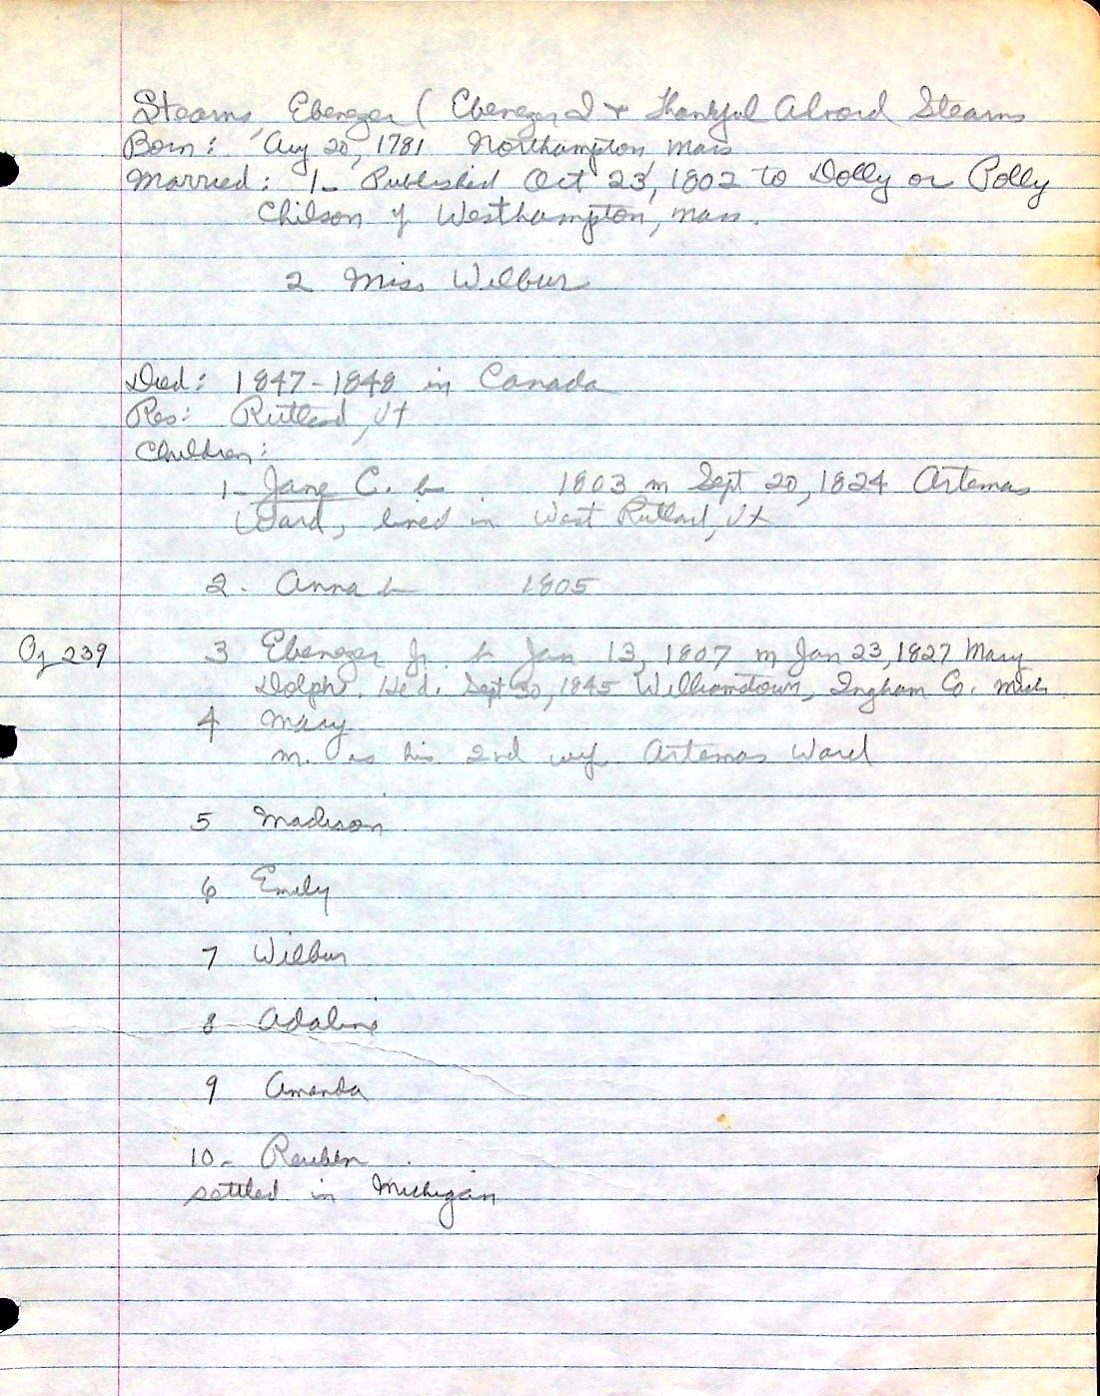 Stearns, Ebenezer ( Ebenezer I + Thankful Alvord Stearns
Born: Aug 20, 1781 Northampton, Mass
Married: 1- Published Oct 23, 1802 to Dolly or Polly
Chilson of Westhampton, Mass.
2 Miss Wilbur
Died: 1847-1848 in Canada
Res: Rutland, Vt
Children:
1- Jane C. b 1803 m Sept 20, 1824 Artemas
Ward, lived in West Rutland, Vt
2. Anna b 1805
239 3 Ebenezer Jr. b Jan 13, 1807 m Jan 23, 1827 Mary
Dolph. He d. Sept 30, 1845 Williamstown, Ingham Co. Mich
4 Mary
m. as his 2nd wife Artemas Ward
5 Madison
6 Emily
7 Wilbur
8 Adaline
9 Amanda
10- Reuben
settled in Michigan